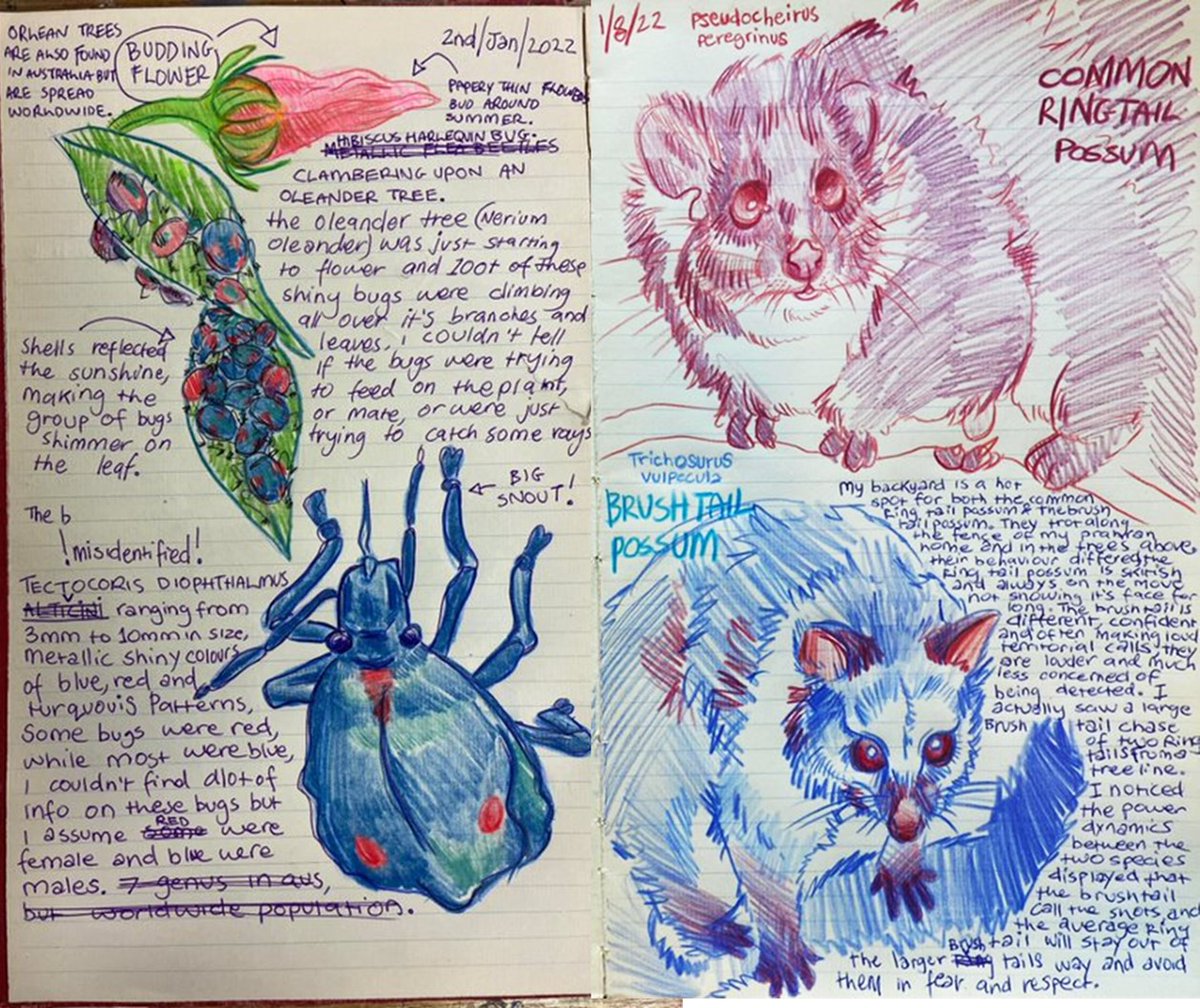 ORLEAN TREES
ARE ALSO FOUND
IN AUSTRALIA BUT
ARE SPREAD
WORLDWIDE.
BUDDING
FLOWER
2nd/Jan/2022
PAPERY THIN FLOWERS
BUD AROUND
SUMMER.
HIBISCUS HARLEQUIN BUG.
METALLIC FLEA BEETLES
CLAMBERING UPON AN
OLEANDER TREE.
the oleander tree (Nerium
oleander) was just starting
to flower and 100+ of these
shiny bugs were climbing
all over it's branches and
leaves, i couldn't tell
if the bugs were trying
to feed on the plant,
or mate, or were just
trying to catch some rays
Shells reflected
the sunshine,
making the
group of bugs
shimmer on
the leaf.
BIG
SNOUT!
The b
!misidentified!
TECTOCORIS DIOPHTHALMUS
ALTICINI ranging from
3mm to 10mm in size,
metallic shiny colours
of blue, red and
turquouis Patterns,
Some bugs were red,
while most were blue,
i couldn't find alot of
info on these bugs but
RED
I assume some were
female and blue were
males. 7 genus in aus,
but worldwide population.
1/8/22
Pseudocheirus
Peregrinus
COMMON
RINGTAIL
POSSUM
Trichosurus
vulpecula
BRUSHTAIL
POSSUM
My backyard is a hot
spot for both the common
Ring tail possum & the brush
tail possum. They trot along
the fense of my prahran
home and in the trees above
their behaviour differed the
Ring tail possum is skitish
and always on the move
not showing it's face for
long. The brushtail is
different, confident
and often making loud
territorial calls, they
are louder and much
less concerned of
being detected. I
actually saw a large
Brush tail chase
of two Ring
tails from a
tree line.
I noticed
the power
dynamics
between the
two species
displayed that
the brushtail
call the shots and
the average Ring
tail will stay out of
Brush
the larger Ring tails way and avoid
them in fear and respect.